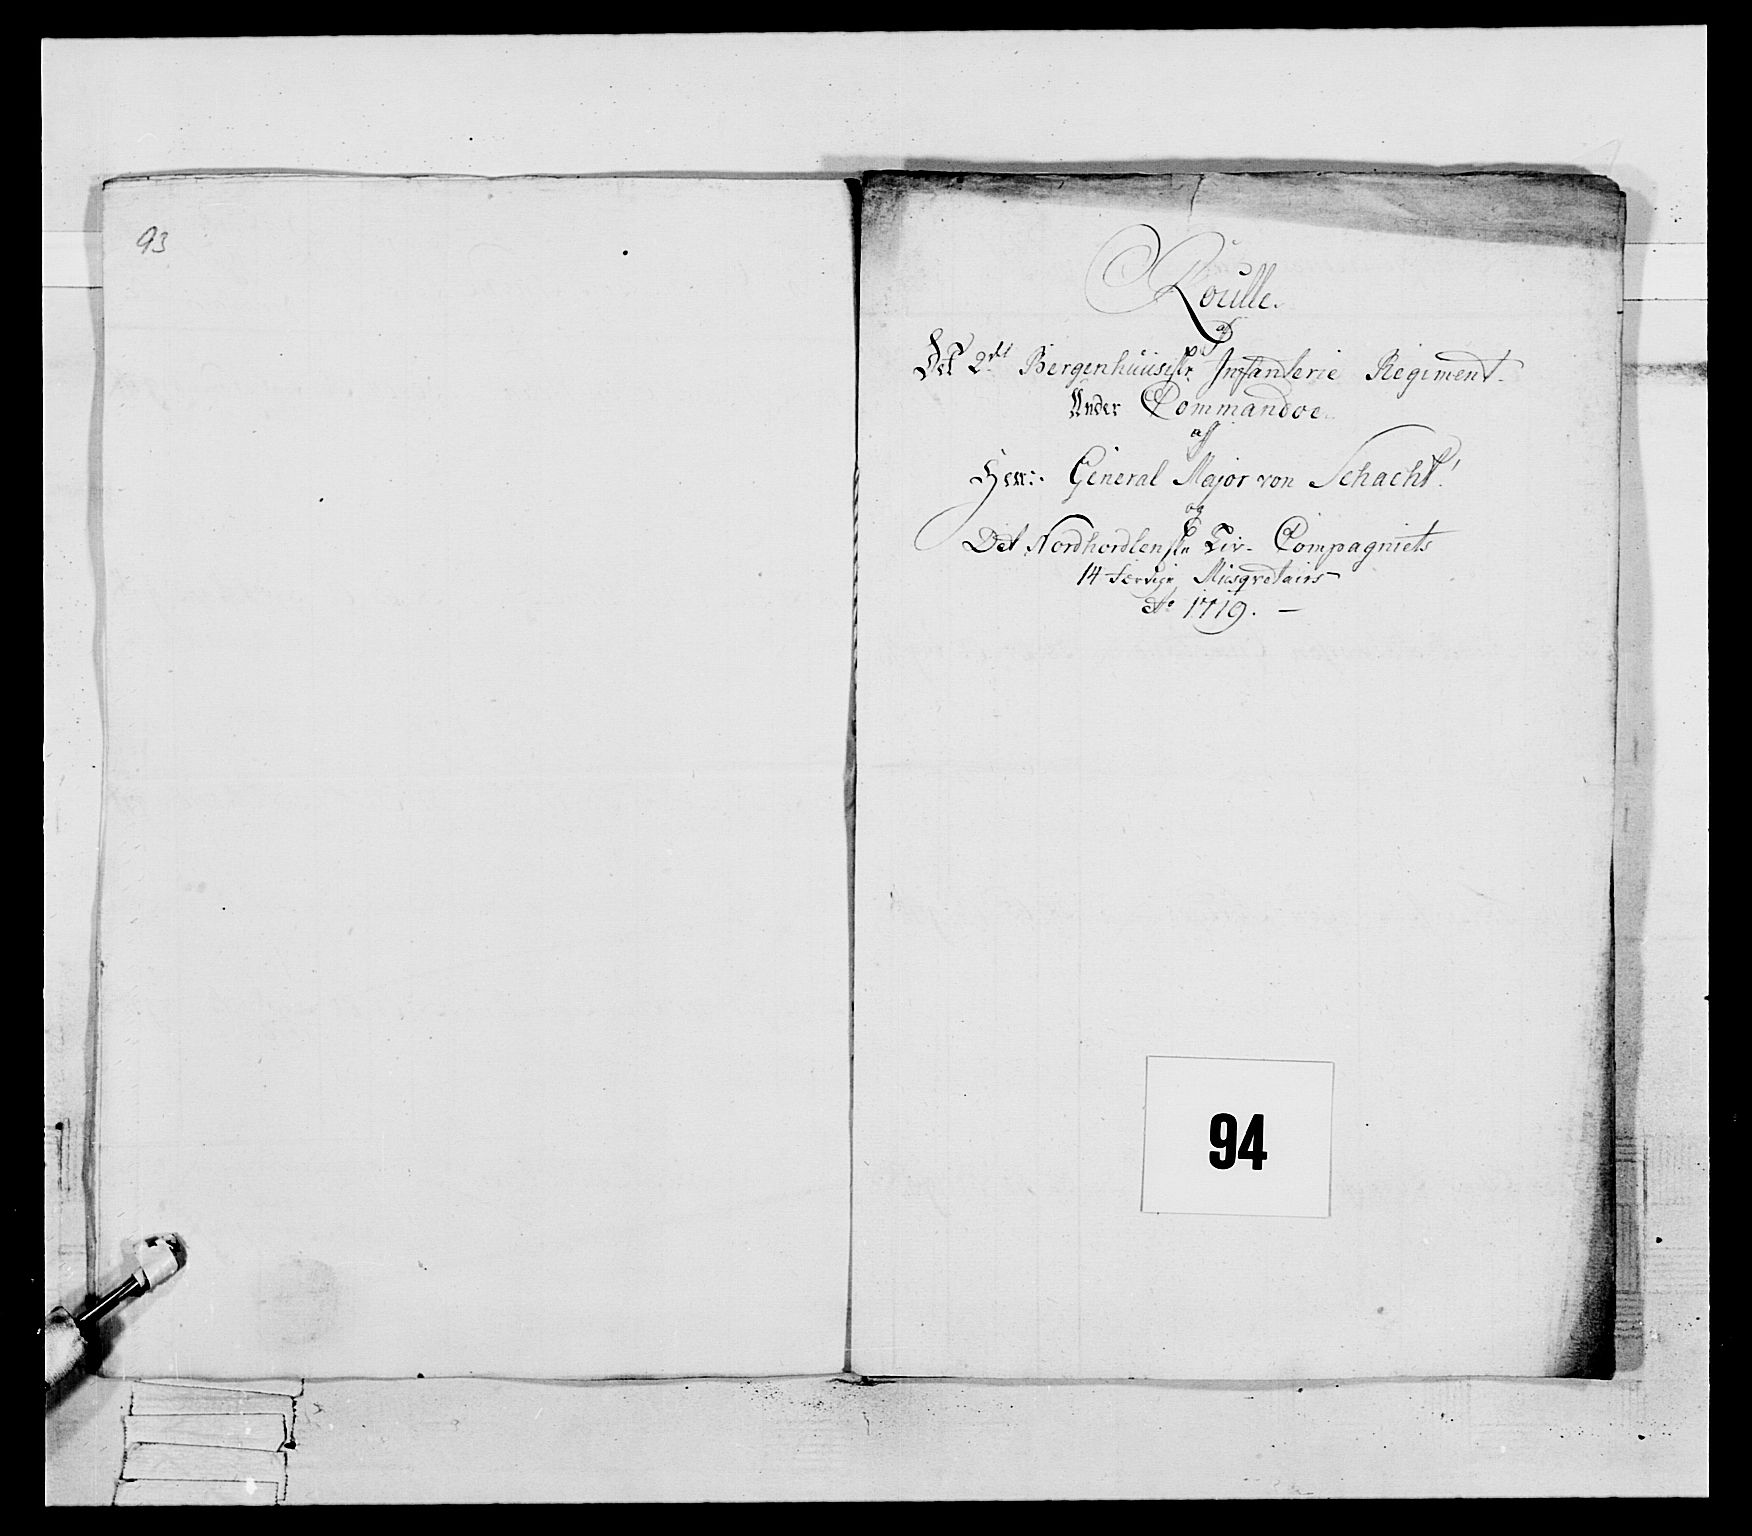 93
Roulle.
af
Det 2det Bergenhuusiske Infanterie Regiment.
Under Commandoe.
aff
Herr: General Major von Schacht!
og
Det Nordhordlenske Liv-Compagniets
14 Musqvetairs
Ao 1719. —
94